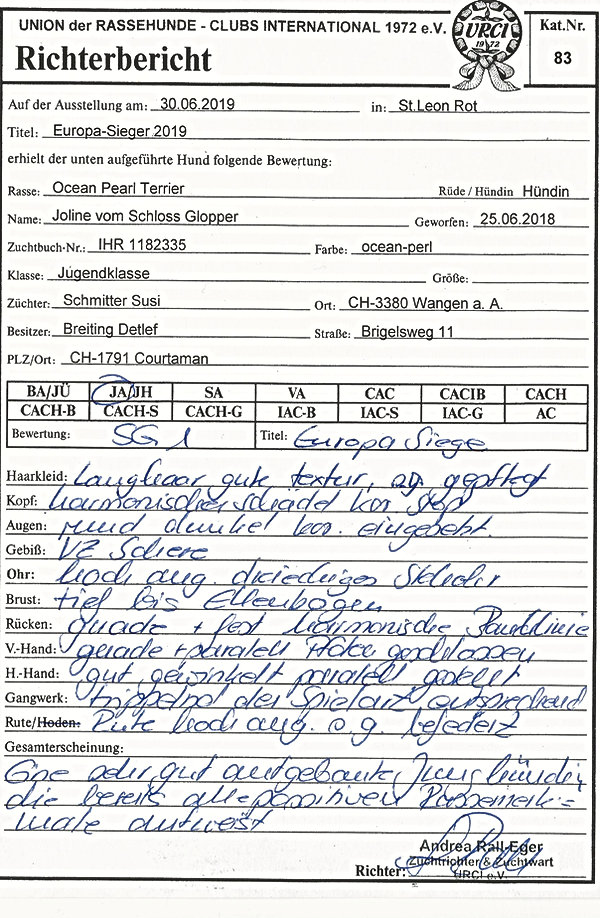 UNION der RASSEHUNDE - CLUBS INTERNATIONAL 1972 e.V.
URCI
1972
Kat.Nr.
Richterbericht
83
Auf der Ausstellung am: 30.06.2019 in: St.Leon Rot
Titel: Europa-Sieger 2019
erhielt der unten aufgeführte Hund folgende Bewertung:
Rasse: Ocean Pearl Terrier Rüde / Hündin Hündin
Name: Joline vom Schloss Glopper Geworfen: 25.06.2018
Zuchtbuch-Nr.: IHR 1182335 Farbe: ocean-perl
Klasse: Jugendklasse Größe:
Züchter: Schmitter Susi Ort: CH-3380 Wangen a. A.
Besitzer: Breiting Detlef Straße: Brigelsweg 11
PLZ/Ort: CH-1791 Courtaman
BA/JÜ JA/JH SA VA CAC CACIB CACH
CACH-B CACH-S CACH-G IAC-B IAC-S IAC-G AC
Bewertung: SG 1 Titel: Europa Siege
Haarkleid: Langhaar gute textur, gepflegt
Kopf: harmonischer Schädel kor. Stop
Augen: rund dunkel kor. eingebett.
Gebiß: VZ Schere
Ohr: hoch ang. dreieckiges Stehohr
Brust: tief bis Ellenbogen
Rücken: grade + fest harmonische
V.-Hand: gerade + parallel geschlossen
H.-Hand: gut gewinkelt parallel gestellt
Gangwerk: trippelnd der Spielart entsprechend
Rute/Hoden: Rute hoch ang. o.g. befedert
Gesamterscheinung:
Eine sehr gut aufgebaute Junghündin
die bereits alle possitiven Rassemerk=
male aufweist
Andrea Rall-Eger
Zuchtrichter & Zuchtwart
Richter: URCI e.V.